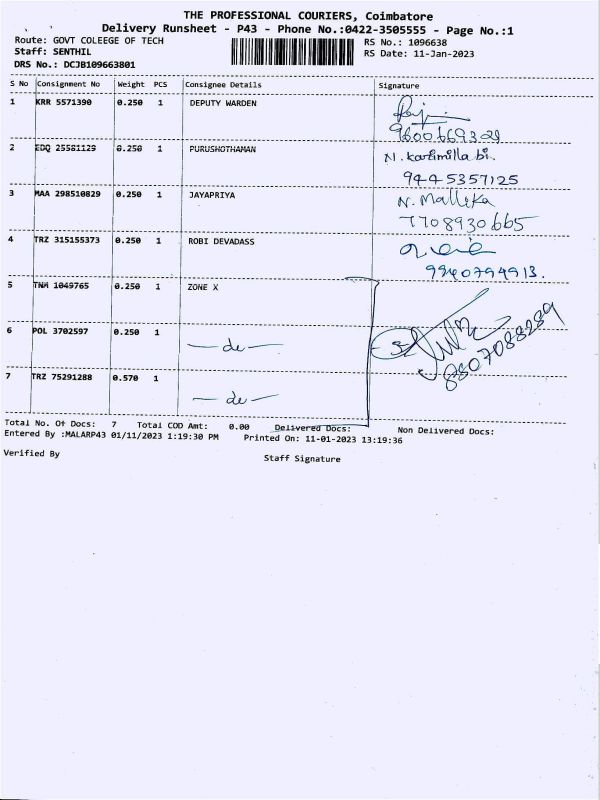 THE PROFESSIONAL COURIERS, Coimbatore
Delivery Runsheet - P43 - Phone No.:0422-3505555 - Page No.:1
Route: GOVT COLEEGE OF TECH RS No.: 1096638
Staff: SENTHIL RS Date: 11-Jan-2023
DRS No.: DCJB109663801
S No Consignment No Weight PCS Consignee Details Signature
1 KRR 5571390 0.250 1 DEPUTY WARDEN
9600669329
2 EDQ 25581129 0.250 1 PURUSHOTHAMAN N. karimilla bi.
9445357125
3 MAA 298510829 0.250 1 JAYAPRIYA N. Mallika
7708930665
4 TRZ 315155373 0.250 1 ROBI DEVADASS
9940794913.
5 TNM 1049765 0.250 1 ZONE X
6 POL 3702597 0.250 1 — do —
8807088289
7 TRZ 75291288 0.570 1 — do —
Total No. Of Docs: 7 Total COD Amt: 0.00 Delivered Docs: Non Delivered Docs:
Entered By :MALARP43 01/11/2023 1:19:30 PM Printed On: 11-01-2023 13:19:36
Verified By Staff Signature